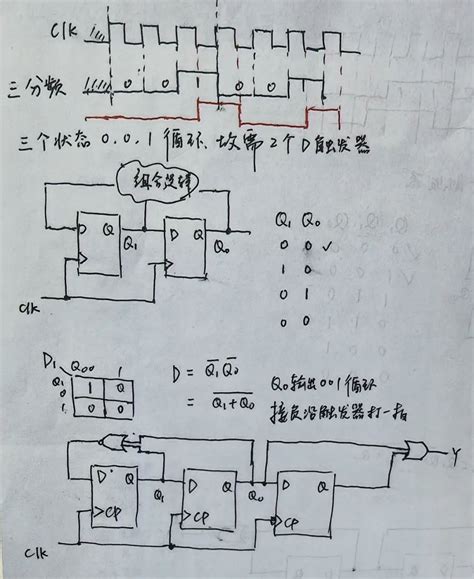 Clk
三分频 0 0 0 0
三个状态 0.0.1循环.故需2个D触发器
组合逻辑
D Q Q₁ D Q Q₀
Q₁ Q₀
0 0 ✓
1 0
0 1
0 0
Clk
D₁ Q₀ 0 1
Q₁ 0 1 0
1 0 0
D = Q̅₁Q̅₀
= \overline{Q₁+Q₀}
Q₀输出001循环
接负沿触发器打一拍
D Q Q₁ D Q Q₀ D Q Y
CP CP CP
Clk